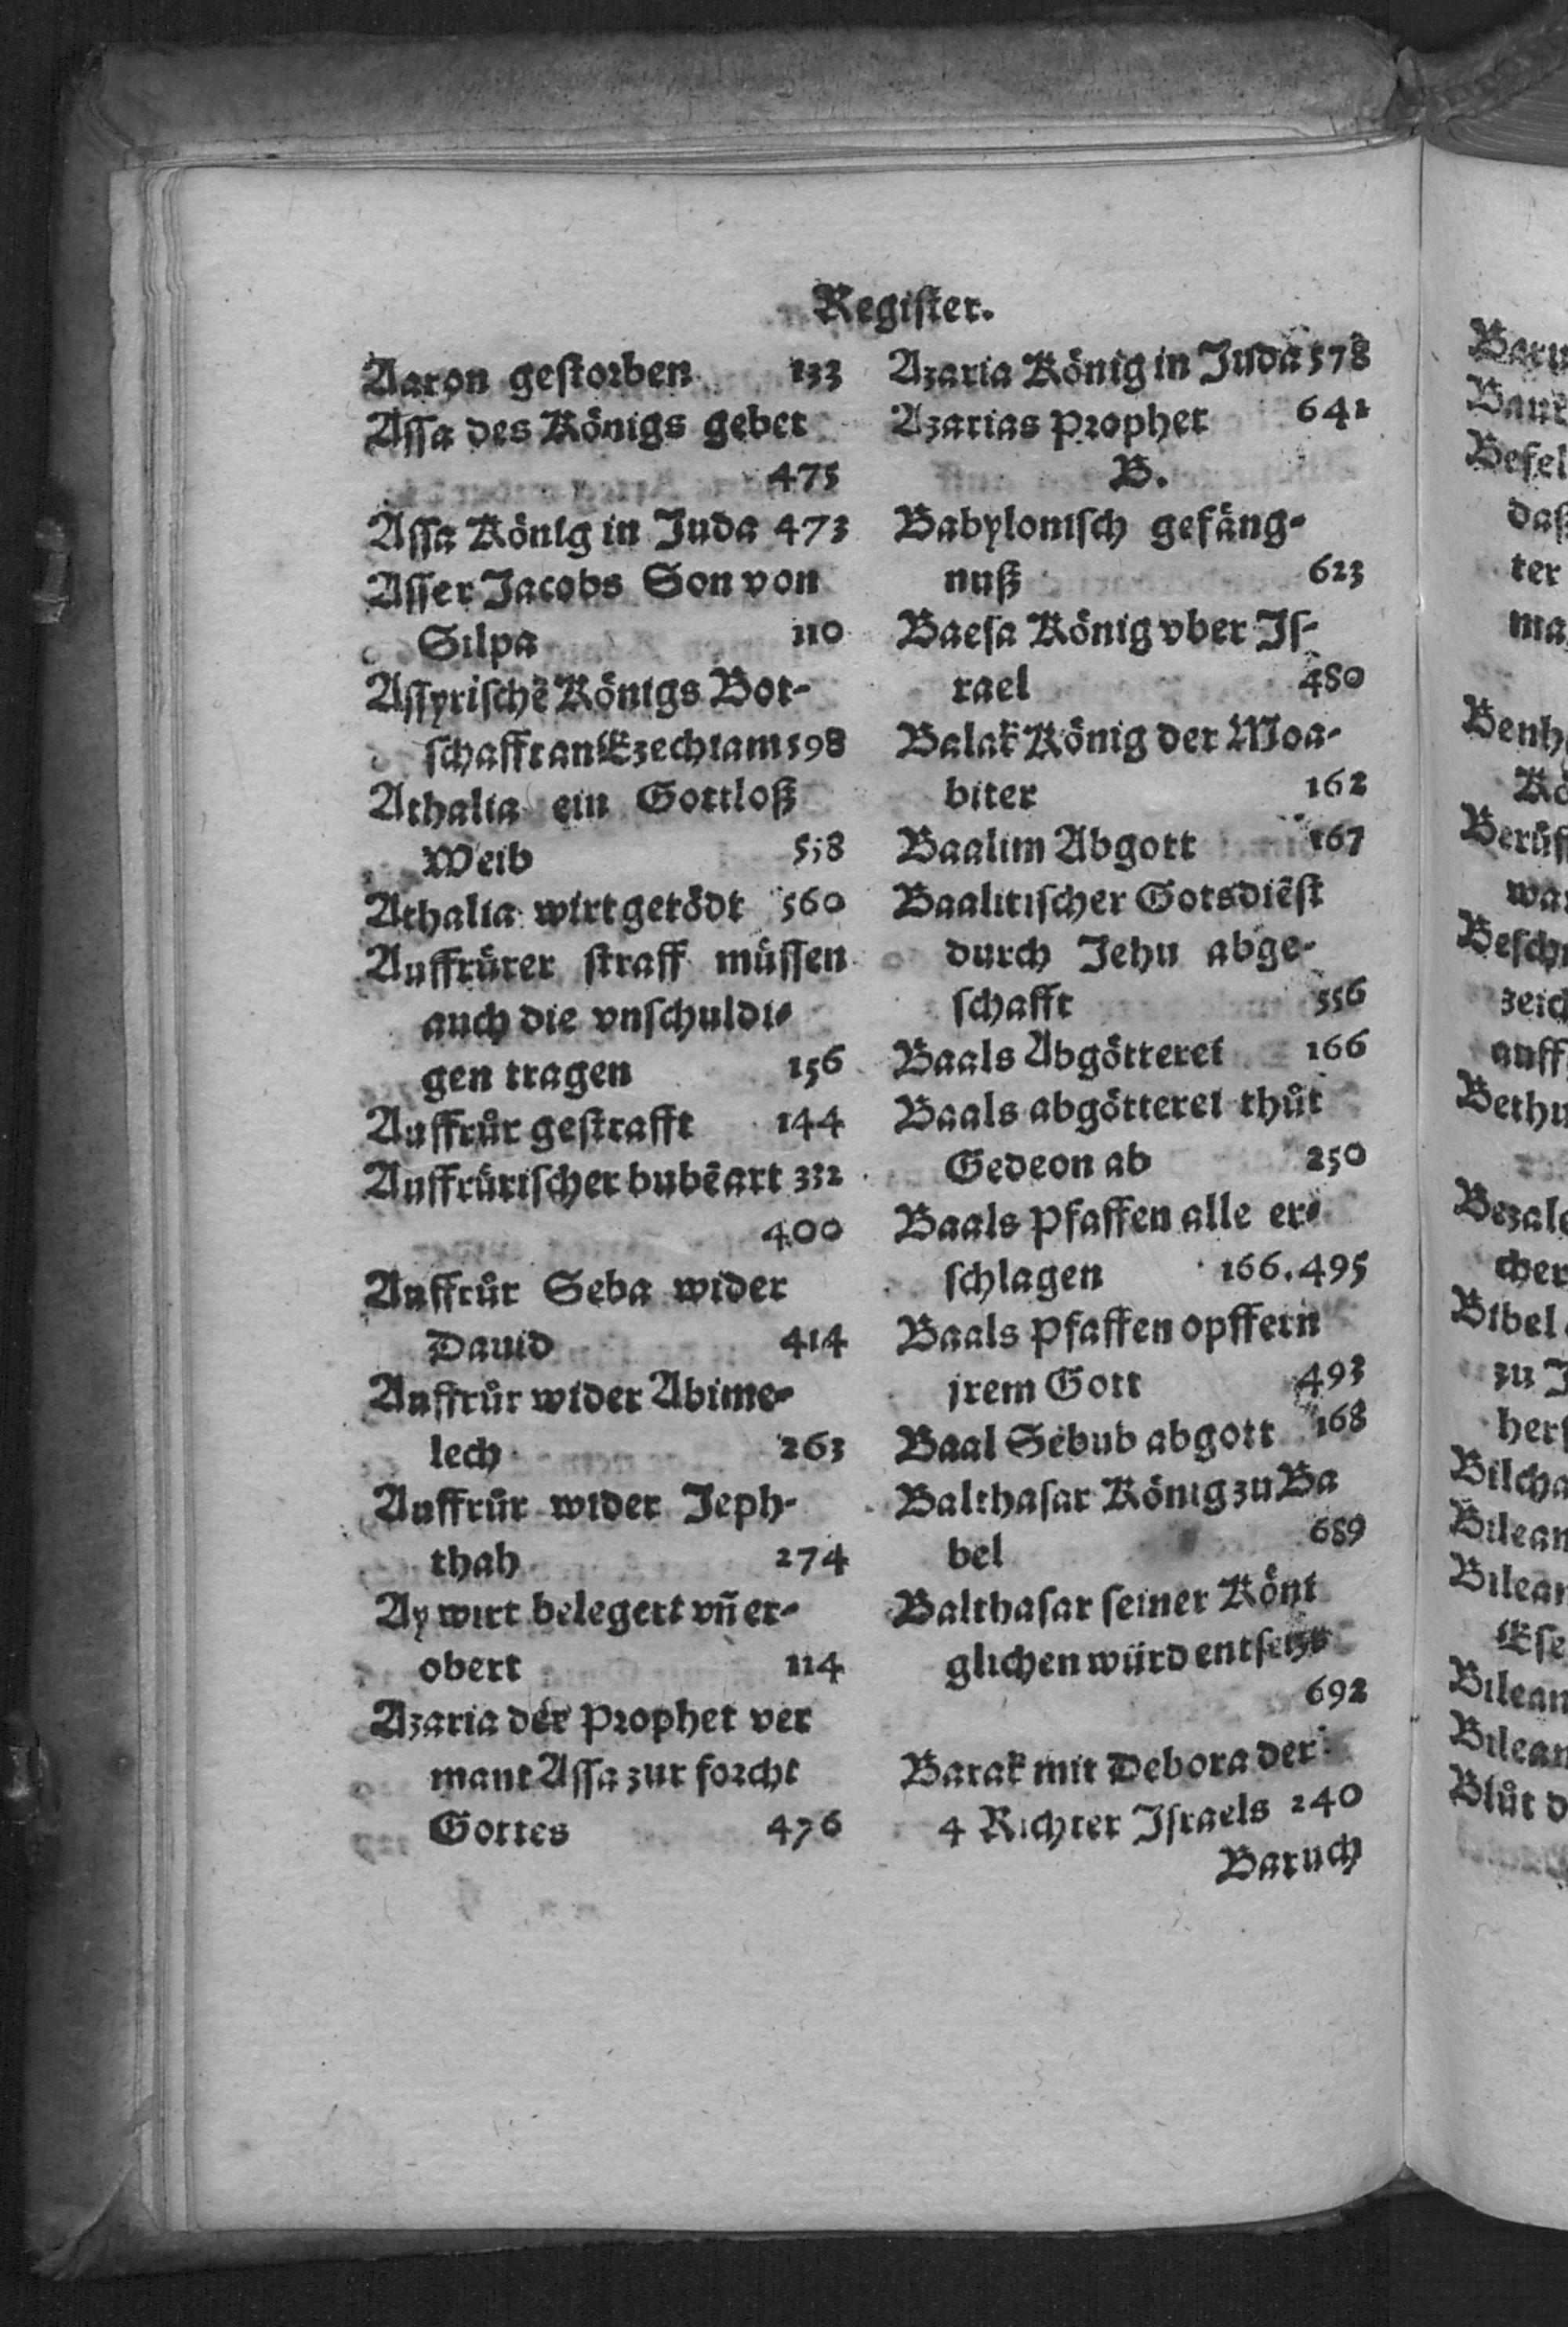 Register.
Aaron gestorben 133
Assa des Königs gebet
475
Assa König in Juda 473
Asser Jacobs Son von
Silpa 110
Assyrischē Königs Bot-
schafft an Ezechiam 598
Athalia ein Gottloß
Weib 558
Athalia wirt getödt 560
Auffrůrer straff můssen
auch die vnschuldi-
gen tragen 156
Auffrůr gestrafft 144
Auffrůrischer bubē art 332
400
Auffrůr Seba wider
Dauid 414
Auffrůr wider Abime-
lech 263
Auffrůr wider Jeph-
thah 274
Ay wirt belegert vñ er-
obert 114
Azaria der Prophet ver
mant Assa zur forcht
Gottes 476
Azaria König in Juda 578
Azarias Prophet 641
B.
Babylonisch gefäng-
nuß 623
Baesa König vber Is-
rael 480
Balak König der Moa-
biter 162
Baalim Abgott 167
Baalitischer Gotsdiēst
durch Jehu abge-
schafft 556
Baals Abgötterei 166
Baals abgötterei thůt
Gedeon ab 250
Baals Pfaffen alle er-
schlagen 166.495
Baals Pfaffen opffern
jrem Gott 493
Baal Sebub abgott 168
Balthasar König zu Ba
bel 689
Balthasar seiner Köni
glichen würd entsetzt
692
Barak mit Debora der
4 Richter Israels 240
Baruch
Benh
Bibel
zu J
Bilcha
Bilean
Bilean
Ese
Bilean
Bilean
Blůt d